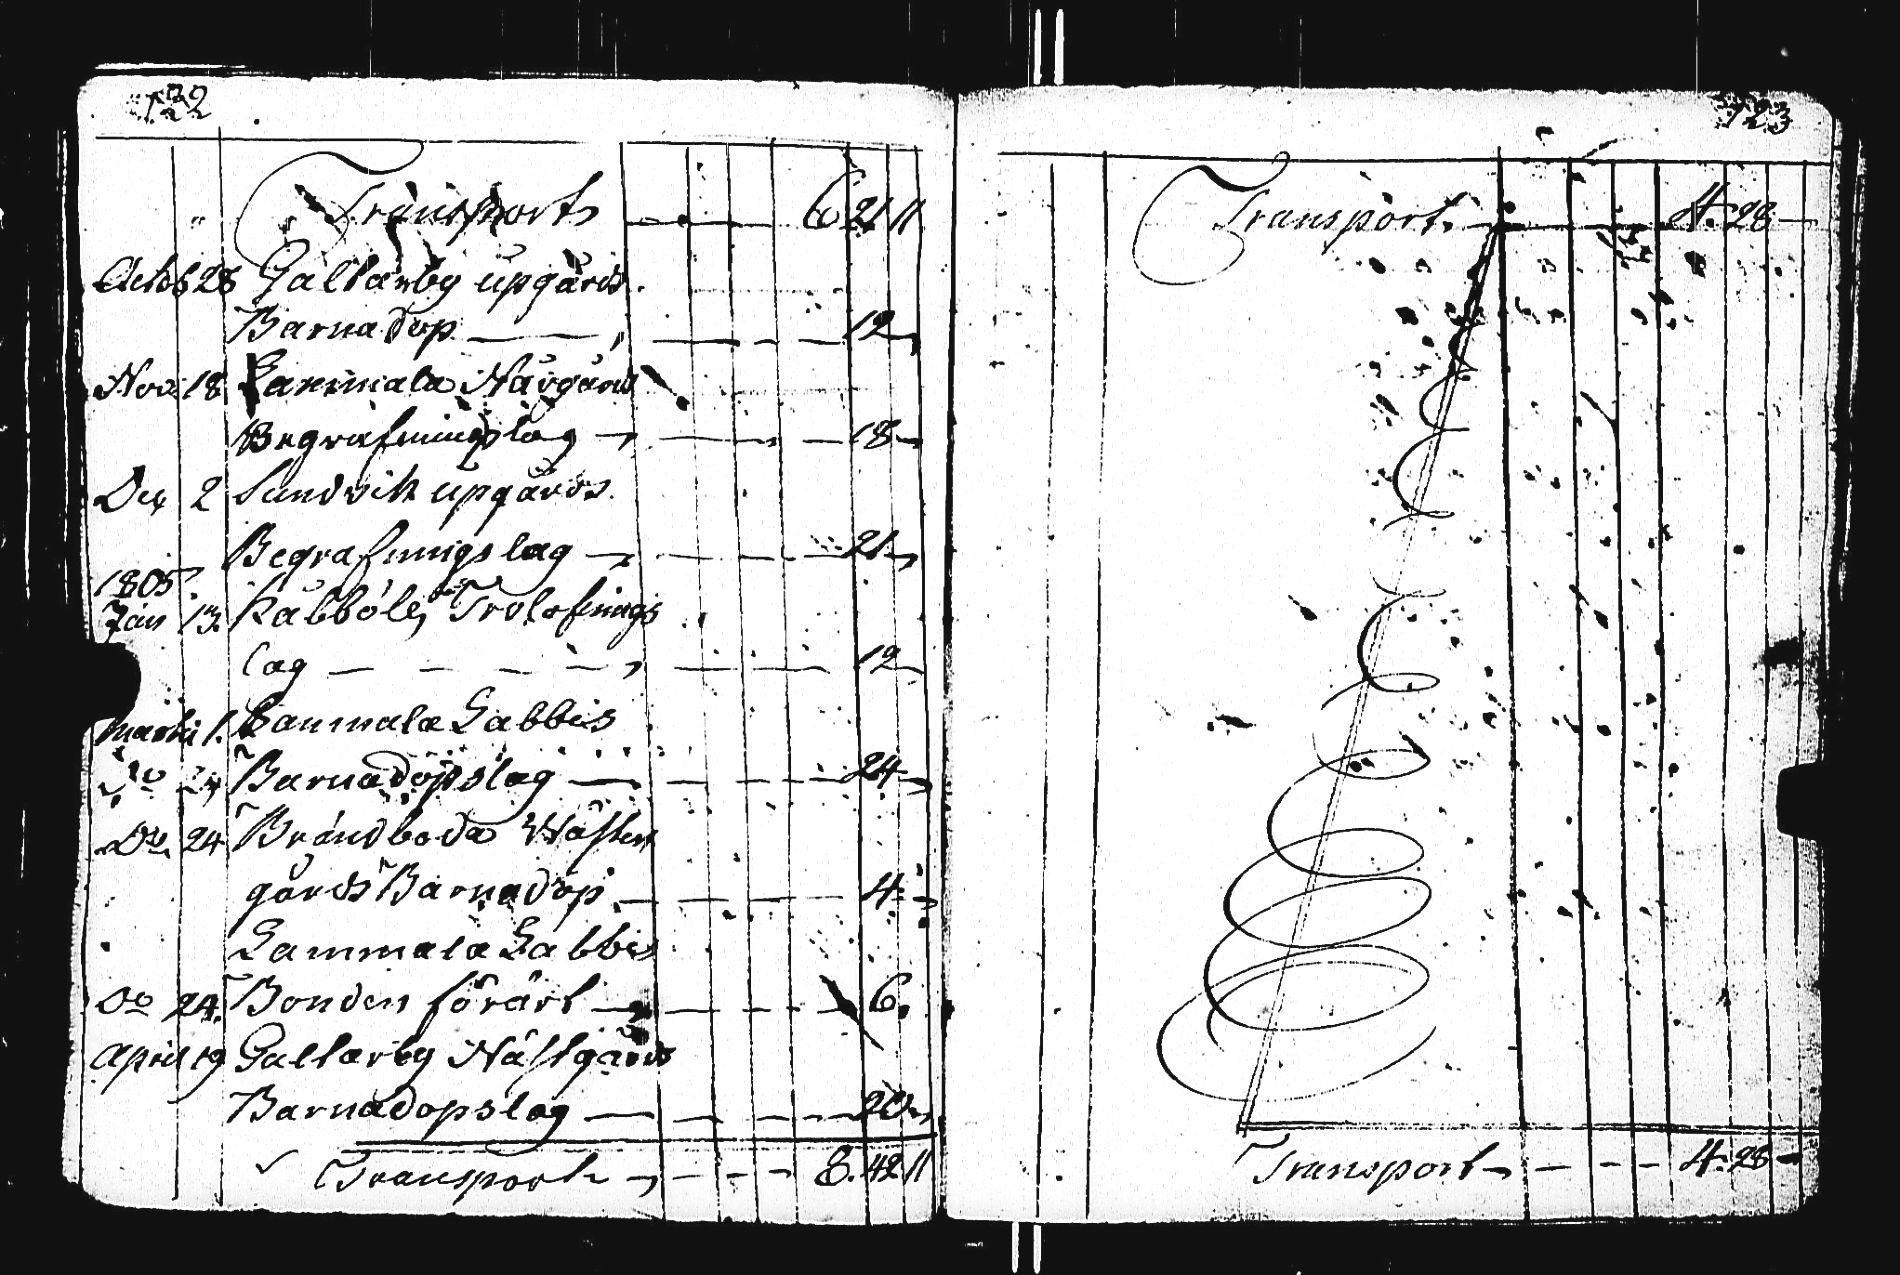 122
Transport 6 21 11
Octob 28 Galtarby upgårds.
Barnadop 12
Nov: 18 Lammala Närgårds
Begrafningslag 18
Dec 2 Sundvik upgårds.
Begrafningslag 21
1805.
Jan 13. Kabböle, Trolofnings
lag 12
Martii 1. Lammala Labbis
Barnadöpslag 24
Do 24 Brändboda Wäster
gårds Barnadöp 4
Lammala Labbis
Do 24. Bonden förärt 6.
April 19 Galtarby Näst gårds
Barnadopslag 20
Transport 8. 42 11
123
Transport. 4. 28
Transport 4. 28